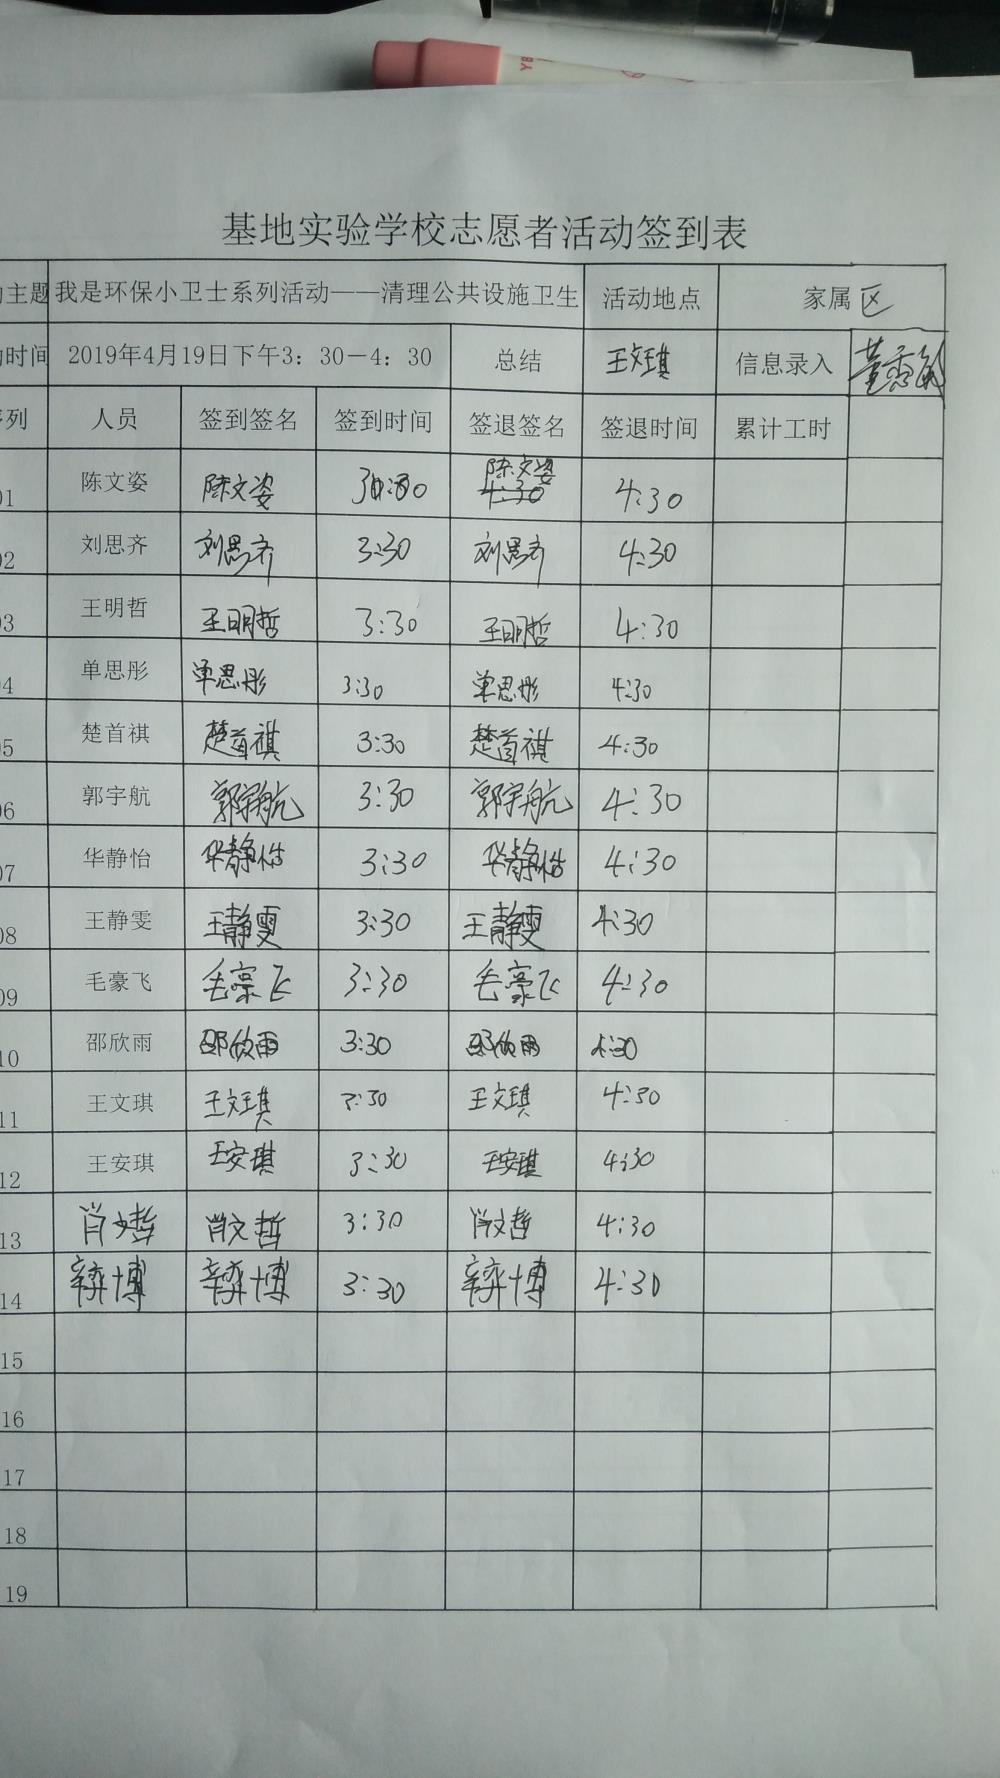 YB
基地实验学校志愿者活动签到表
动主题 我是环保小卫士系列活动——清理公共设施卫生 活动地点 家属区
动时间 2019年4月19日下午3：30－4：30 总结 王文琪 信息录入
序列 人员 签到签名 签到时间 签退签名 签退时间 累计工时
01 陈文姿 陈文姿 陈文姿 4:30 4:30
02 刘思齐 刘思齐 3:30 刘思齐 4:30
03 王明哲 王明哲 3:30 王明哲 4:30
04 单思彤 单思彤 3:30 单思彤 4:30
05 楚首祺 楚首祺 3:30 楚首祺 4:30
06 郭宇航 郭宇航 3:30 郭宇航 4:30
07 华静怡 华静怡 3:30 华静怡 4:30
08 王静雯 王静雯 3:30 王静雯 4:30
09 毛豪飞 毛豪飞 3:30 毛豪飞 4:30
10 邵欣雨 邵欣雨 3:30 邵欣雨 4:30
11 王文琪 王文琪 3:30 王文琪 4:30
12 王安琪 王安琪 3:30 王安琪 4:30
13 肖文哲 肖文哲 3:30 肖文哲 4:30
14 辛奕博 辛奕博 3:30 辛奕博 4:30
15
16
17
18
19